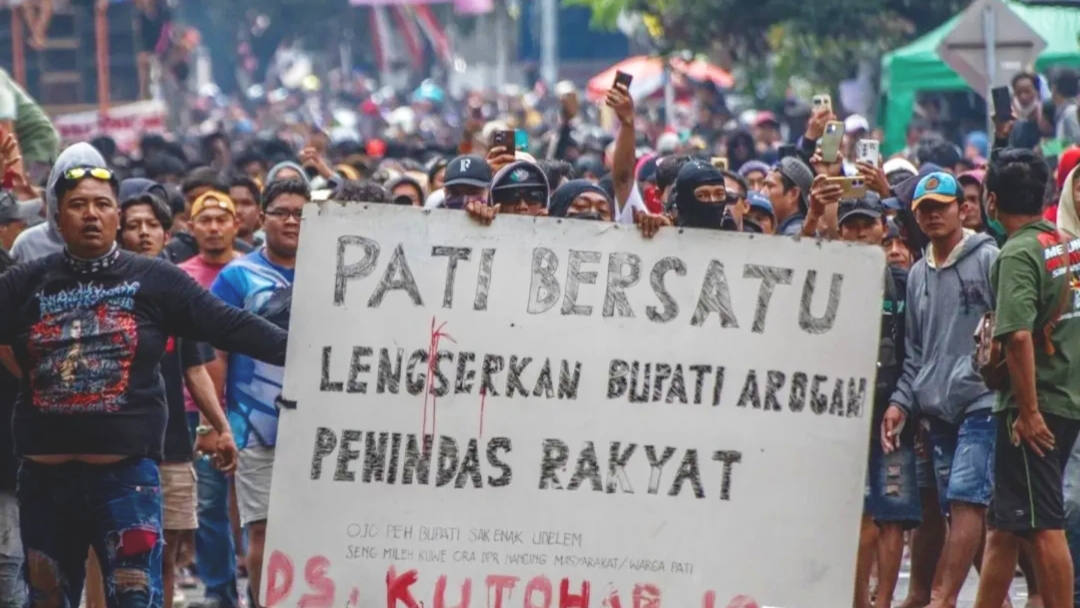 PATI BERSATU
LENGSERKAN BUPATI AROGAN
PENINDAS RAKYAT
OJO PEH BUPATI SAK ENAK UDELEM
SENG MILEH KUWE ORA DPR NANGING MASYARAKAT/WARGA PATI
DS. KUTOHAR